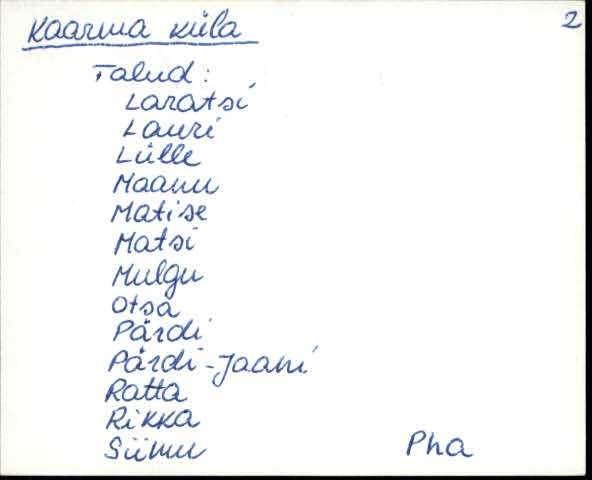 Kaarma küla 2
Talud:
Laratsi
Lauri
Lülle
Maanu
Matise
Matsi
Mulgu
Otsa
Pärdi
Pärdi-Jaani
Ratta
Rikka
Siimu Pha